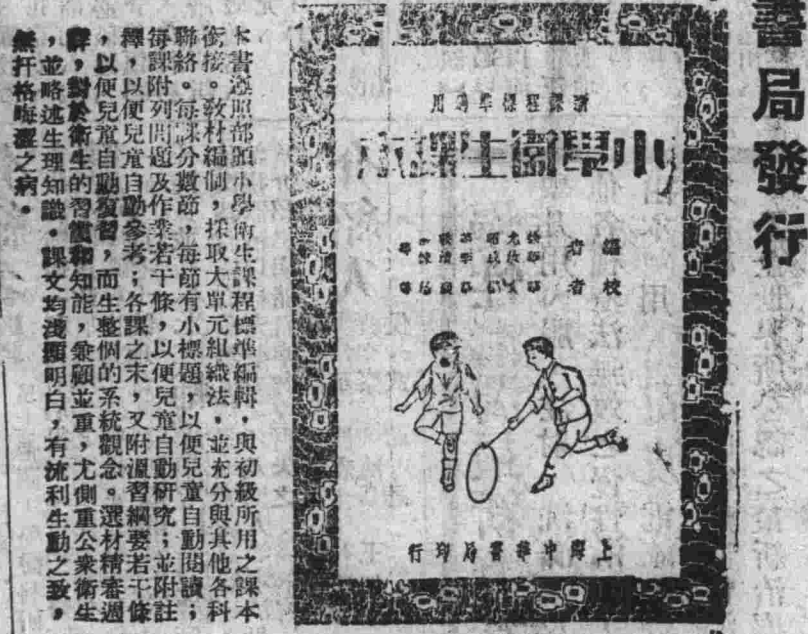 書局發行
新課程標準適用
小學衛生課本
編者
校者
上海中華書局印行
本書遵照部頒小學衛生課程標準編輯，與初級所用之課本
銜接。教材編制，採取大單元組織法，並充分與其他各科
聯絡。每課分數節，每節有小標題，以便兒童自動閱讀；
每課附列問題及作業若干條，以便兒童自動研究；並附註
釋，以便兒童自動參考；各課之末，又附溫習綱要若干條
，以便兒童自動復習，而生整個的系統觀念。選材精審週
詳，對於衛生的習慣和知能，兼顧並重，尤側重公衆衛生
，並略述生理知識。課文均淺顯明白，有流利生動之致，
無扞格晦澀之病。